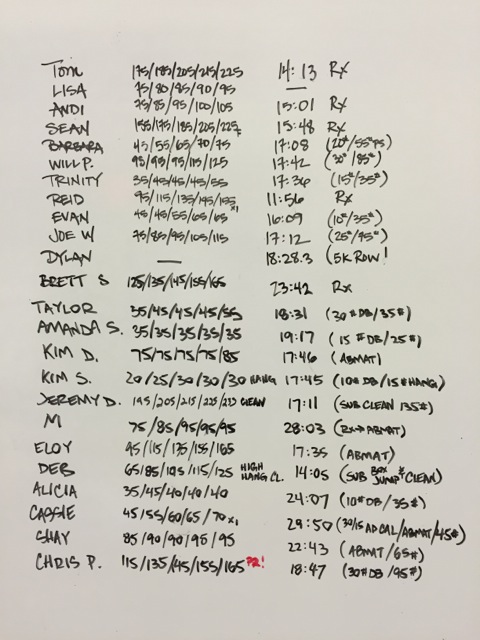 Tom 175/185/205/215/225 14:13 Rx
LISA 75/80/85/90/95 —
ANDI 75/85/95/100/105 15:01 Rx
SEAN 155/175/185/205/225 15:48 Rx
BARBARA 45/55/65/70/75 17:08 (20#/55#PS)
WILL P. 95/95/95/115/125 17:42 (30#/85#)
TRINITY 35/45/45/45/55 17:36 (15#/35#)
REID 95/115/135/145/155 11:56 Rx
EVAN 45/45/55/65/65x1 16:09 (10#/35#)
JOE W 75/85/95/105/115 17:12 (25#/95#)
DYLAN — 18:28.3 (5K ROW!
BRETT S 125/135/145/155/165 23:42 Rx
TAYLOR 35/45/45/45/55 18:31 (30#DB/35#)
AMANDA S. 35/35/35/35/35 19:17 (15#DB/25#)
KIM D. 75/75/75/75/85 17:46 (ABMAT)
KIM S. 20/25/30/30/30 HANG 17:45 (10#DB/15#HANG)
JEREMY D. 195/205/215/225/235 CLEAN 17:11 (SUB CLEAN 135#)
M 75/85/95/95/95 28:03 (Rx→ABMAT)
ELOY 95/115/135/155/165 17:35 (ABMAT)
DEB 65/85/105/115/125 HIGH HANG CL. 14:05 (SUB BOX JUMP & CLEAN)
ALICIA 35/45/40/40/40 24:07 (10#DB/35#)
CASSIE 45/55/60/65/70x1 29:50 (30/15 AD CAL/ABMAT/45#)
SHAY 85/90/90/95/95 22:43 (ABMAT/65#)
CHRIS P. 115/135/145/155/165 PR! 18:47 (30#DB/95#)